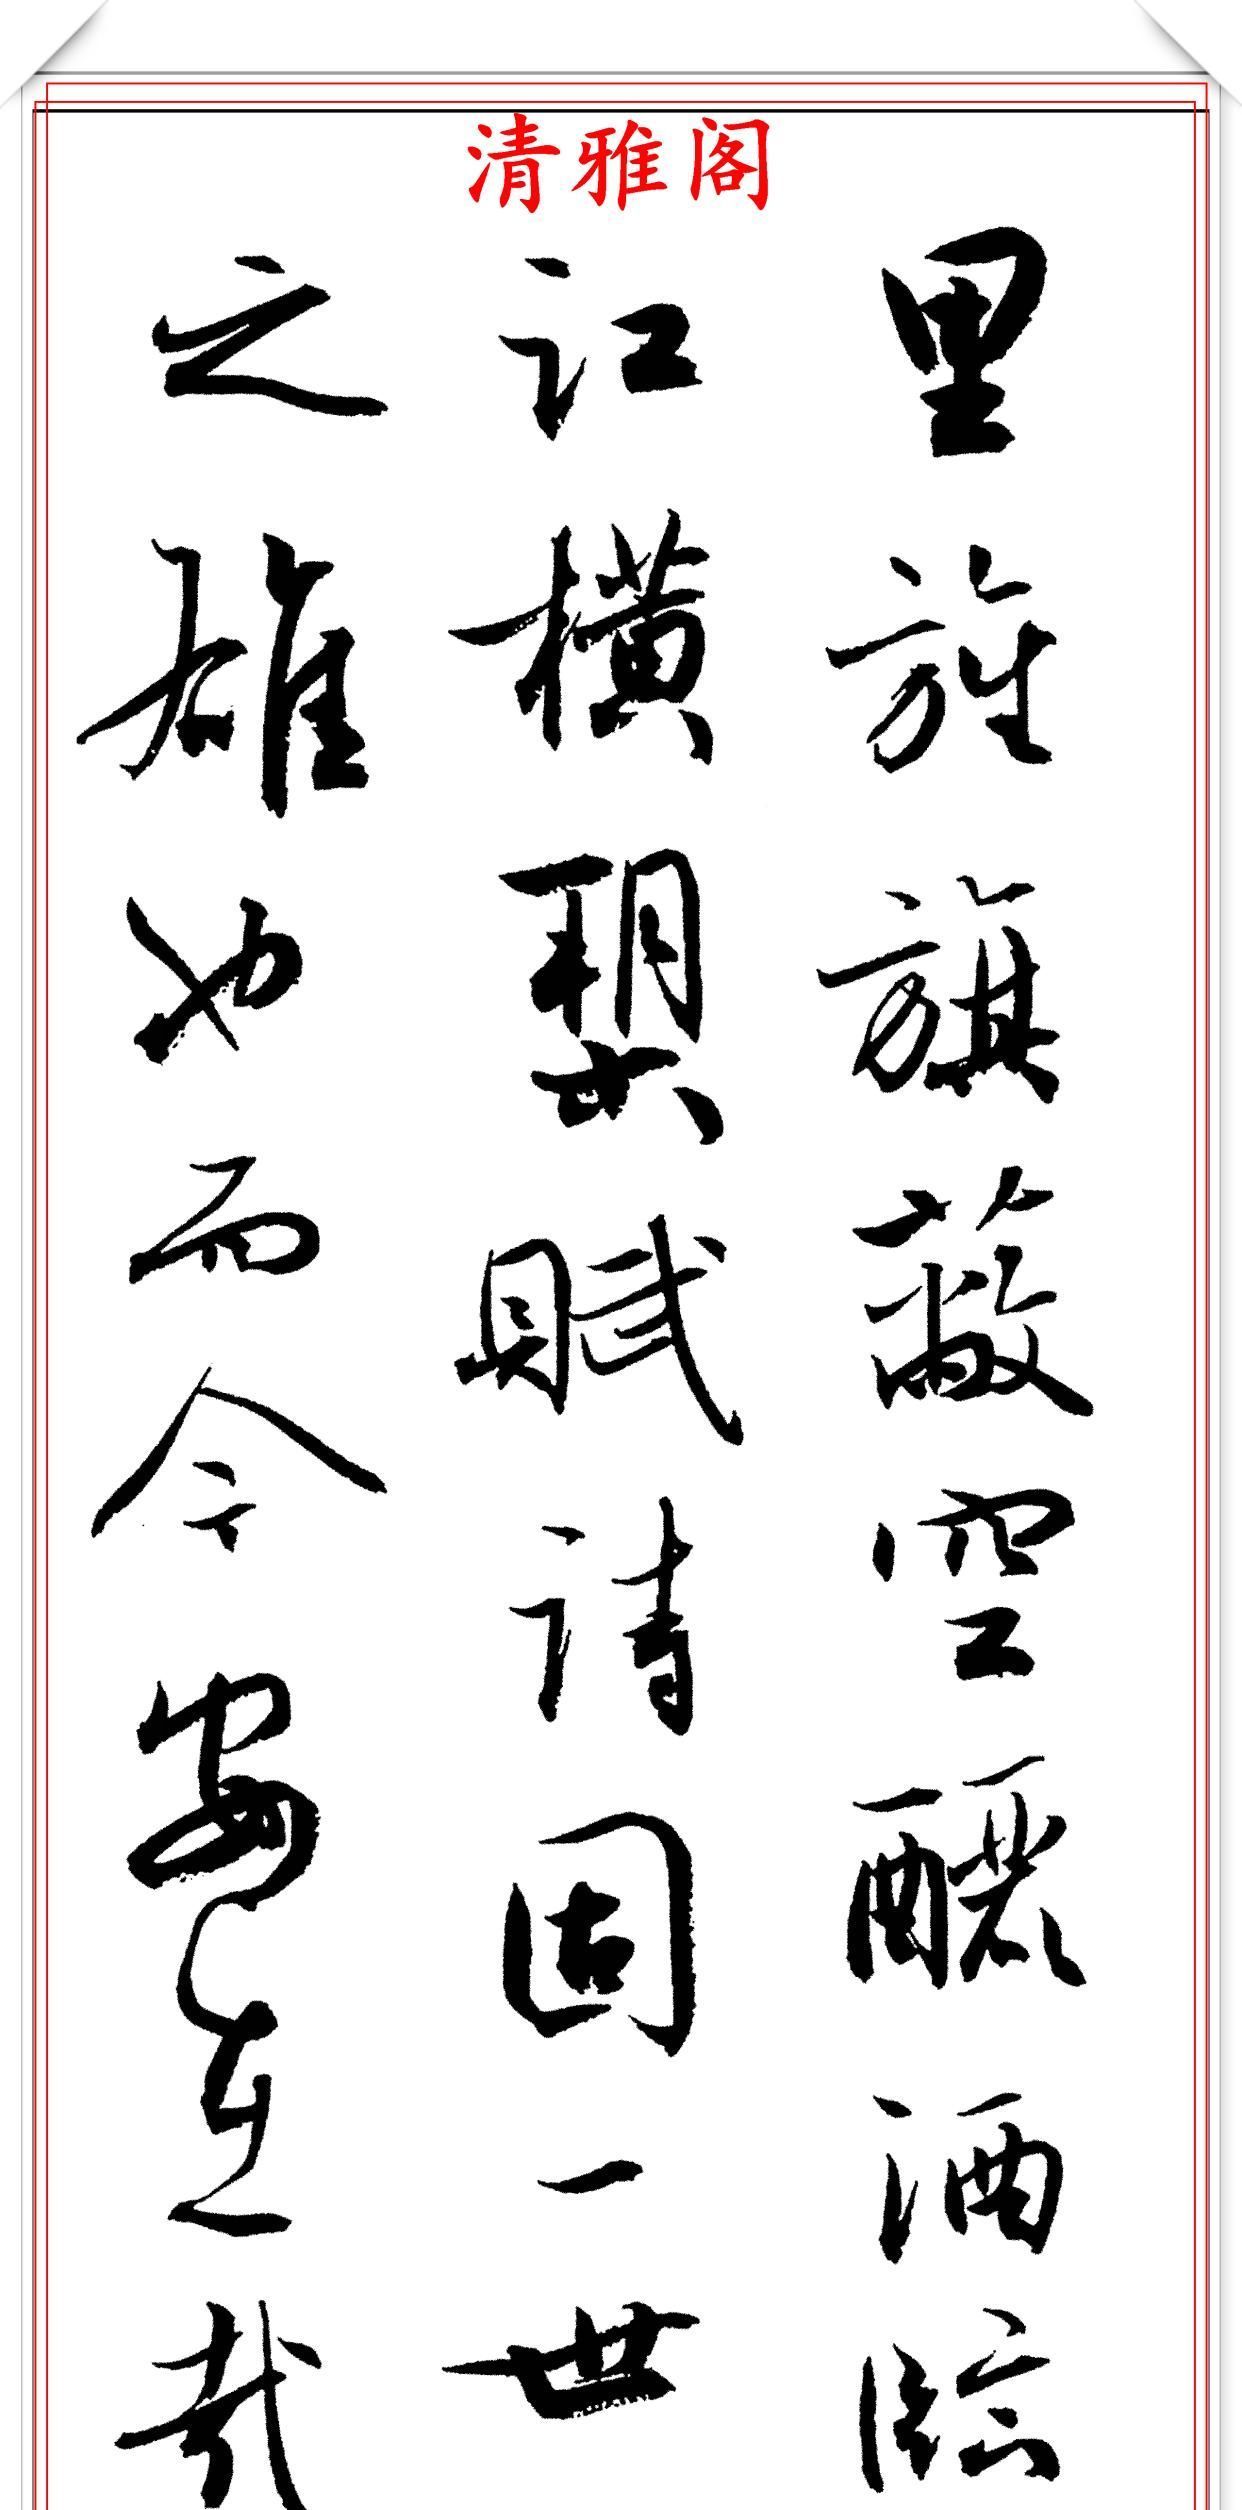 清雅阁
里旌旗蔽空釃酒臨
江橫槊賦詩固一世
之雄也而今安在哉